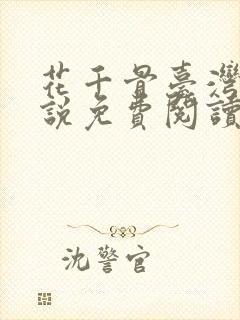 花千骨臺灣
說免費閱讀
沈警官